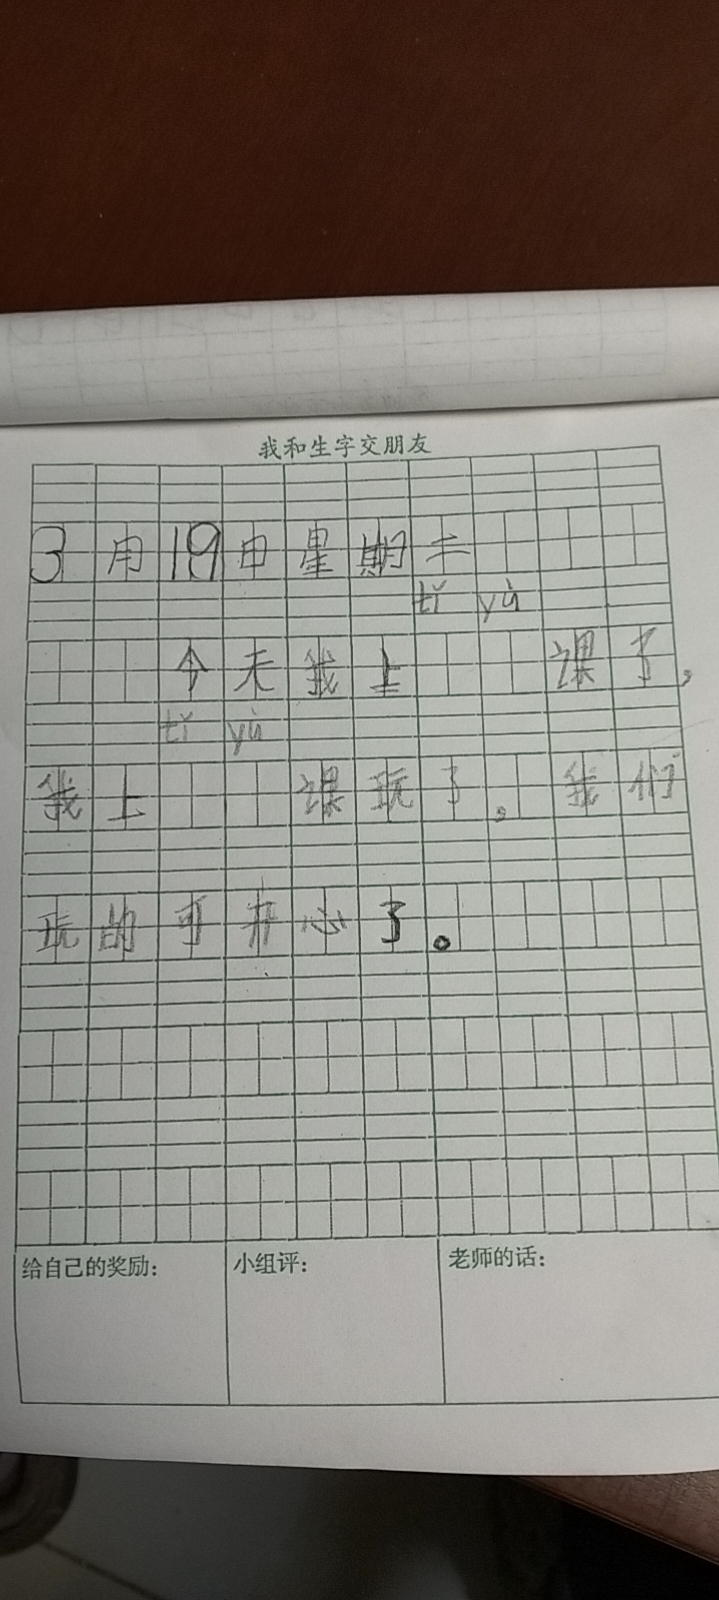 我和生字交朋友
3月19日星期二
tǐ yù
今天我上课了,
tǐ yù
我上课玩了,我们
玩的可开心了。
给自己的奖励: 小组评: 老师的话: